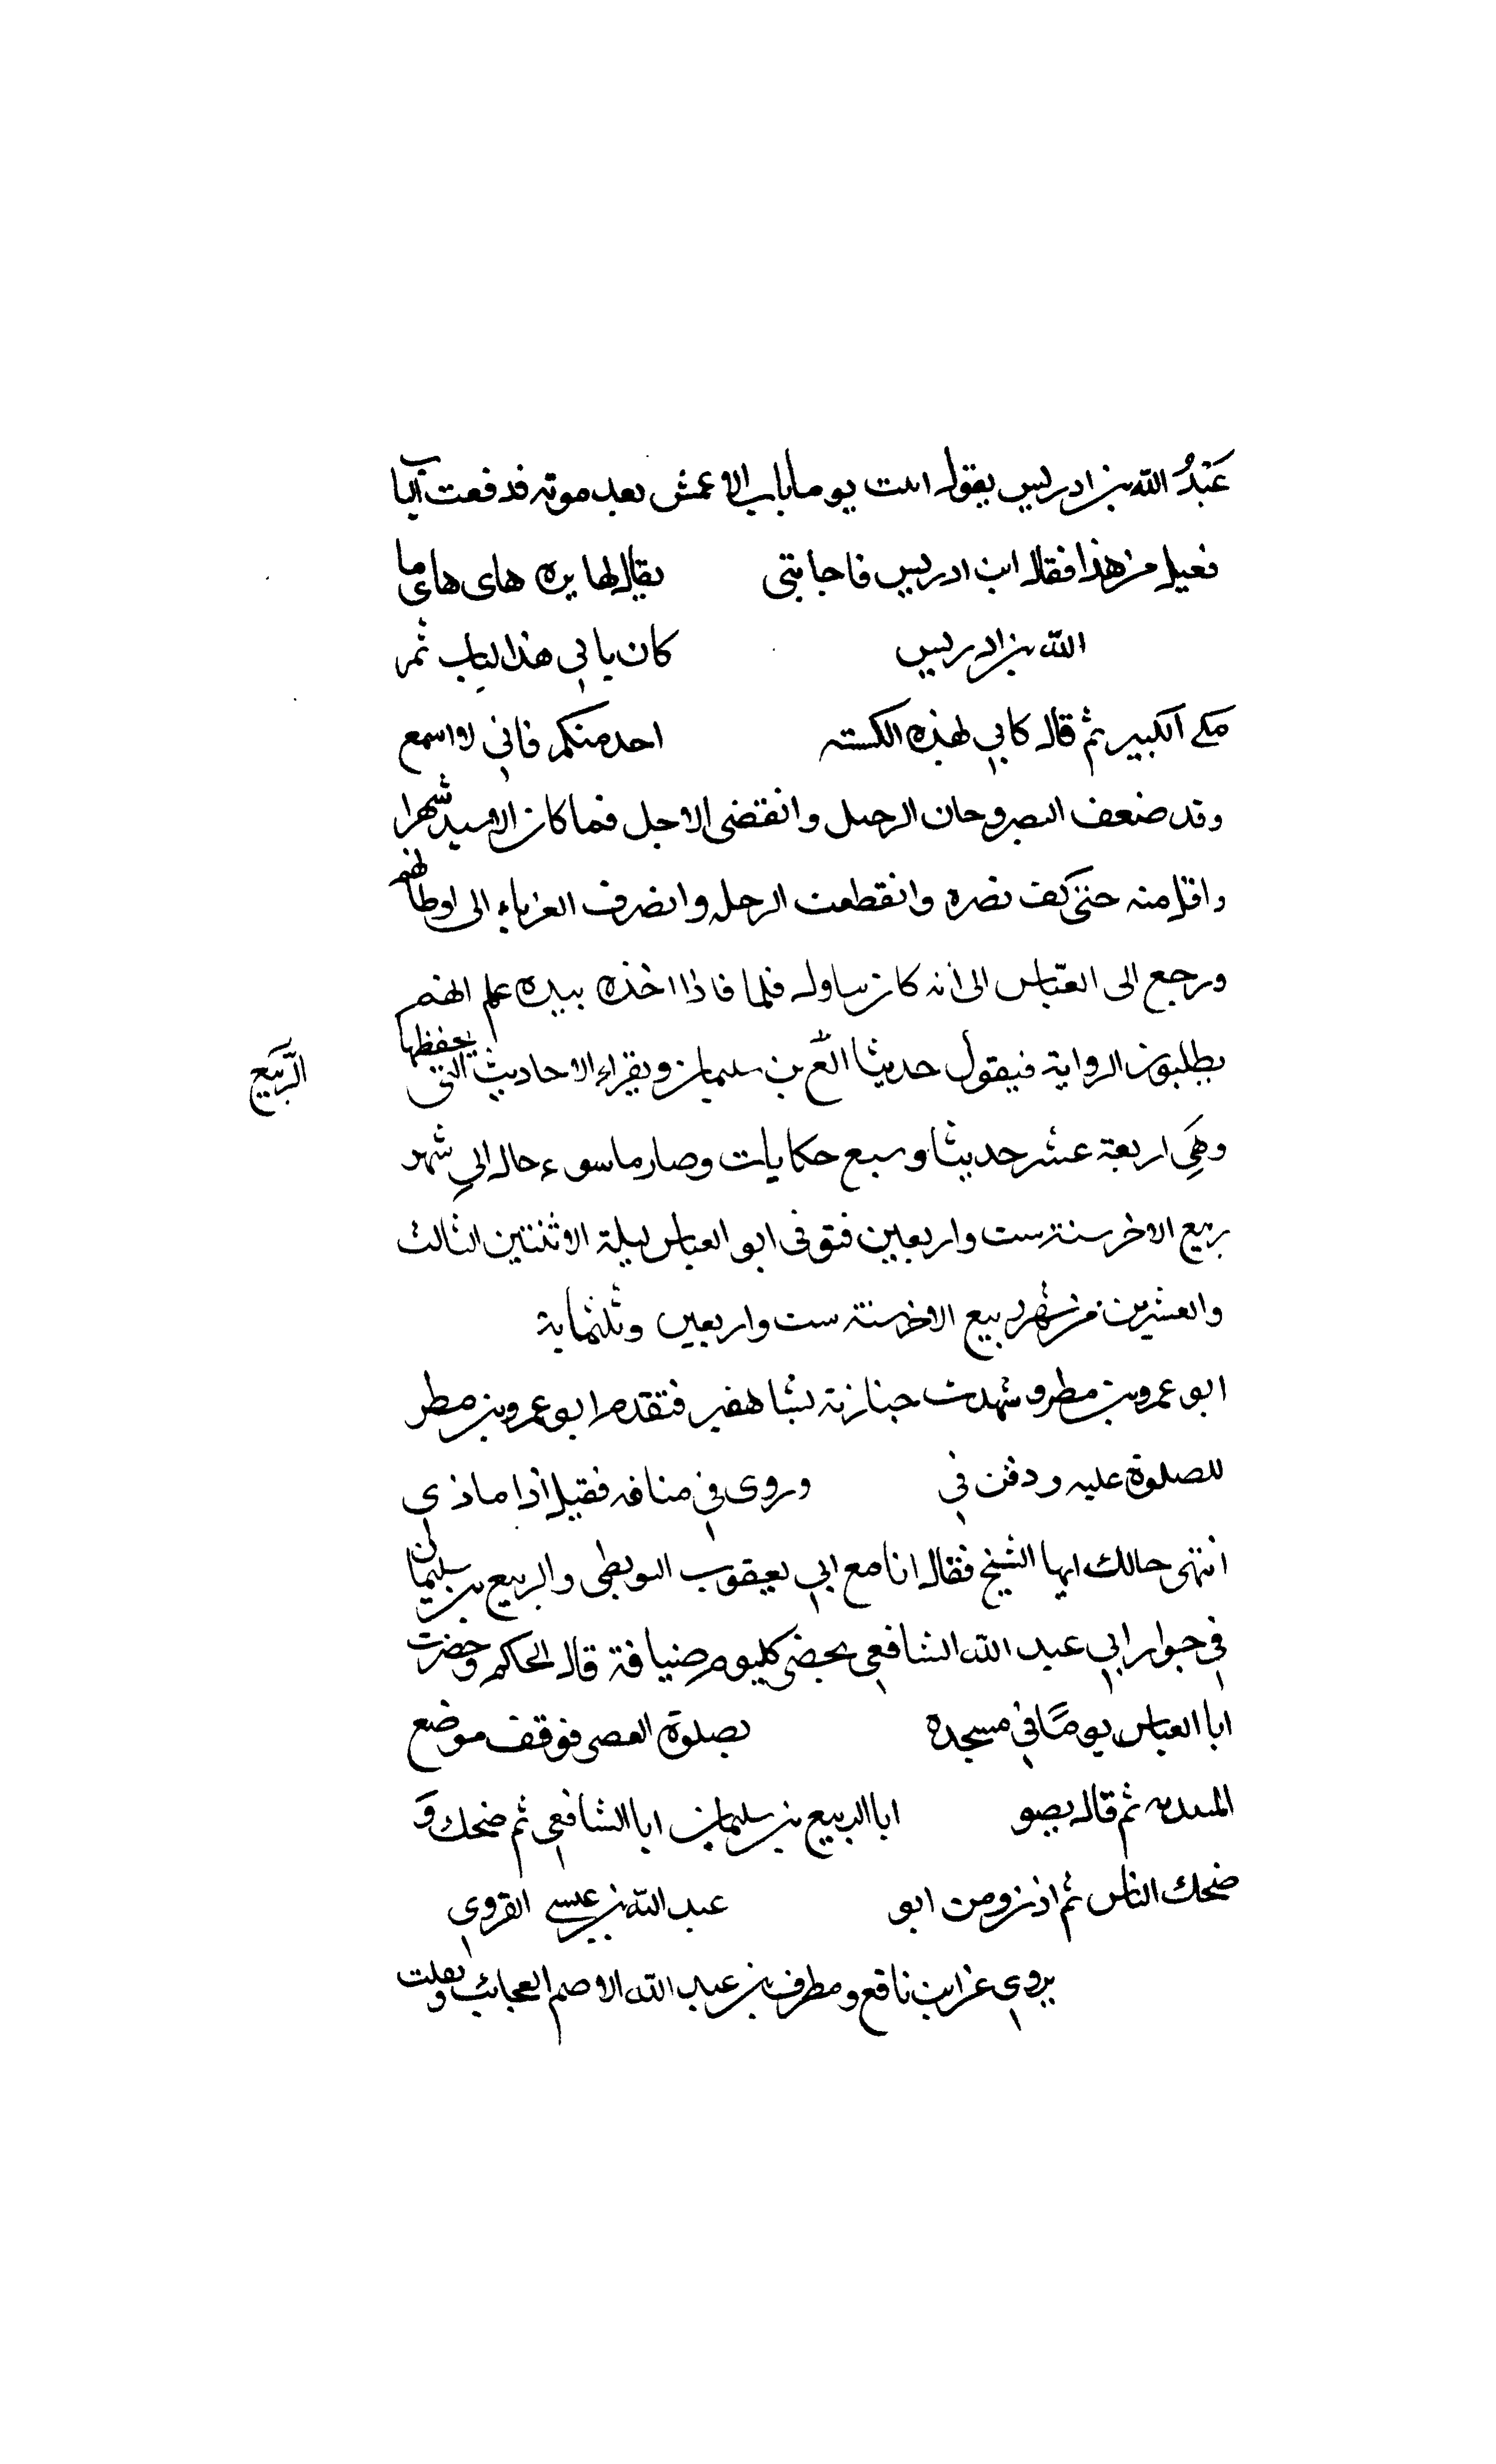 عَبْدُ الله بن ادريس يقول اتيت يوما باب الاعمش بعد موته فدفعت الباب
فقيل من هذا فقال ابن ادريس فاجابتنى يقال لها بره هاى هاى ما
الله بن ادريس كان ياتى هذا لباب ثم
مكى الكبير ثم قال كانى بهذه السكته احد منكم فانى لا اسمع
وقد ضعف البصر وحان الرحيل وانقضى الاجل فما كان الا شهرا
واقل منه حتى كف بصره وانقطعت الرحله وانصرف الغرباء الى اوطانهم
ورجع الى العبّاس الى انه كان يناوله قلما فاذا اخذه بيده علم انهم
يطلبون الرواية فيقول حديثا الربيع بن سليمان ويقراء الاحاديث التى يحفظها
الرّبيع
وهَى اربعة عشر حديثا وسبع حكايات وصار ماسوء حال الى شهر
ربيع الاخر سنة ست واربعين فتوفى ابو العباس ليلة الاثنتين الثالث
والعشرين من شهر ربيع الاخر سنة ست واربعين وثلثماية
ابو عمرو بن مطر وشهدت جنازته بشاهفبر فتقدم ابو عمرو بن مطر
للصلوة عليه ودفن فى وروى فى منامه فقيل اذا ماذى
انتهى حالك ايها الشيخ فقال انا مع ابى يعقوب البويطى والربيع بن سليمان
فى جوار ابى عبد الله الشافعى بحضى كليوم ضيافة قال الحاكم وحضرت
ابا العباس يومًا فى مسجده بصلوة العصر فوقف موضع
ثم قال بصو ابا الربيع بن سليمان ابا الشافعى ثم ضحك وَ
ضحك الناس ثم اذن ومن ابو عبد الله بن عيسى القروى
يروى عن ابن نافع ومطرف بن عبد الله الاصم العجائب